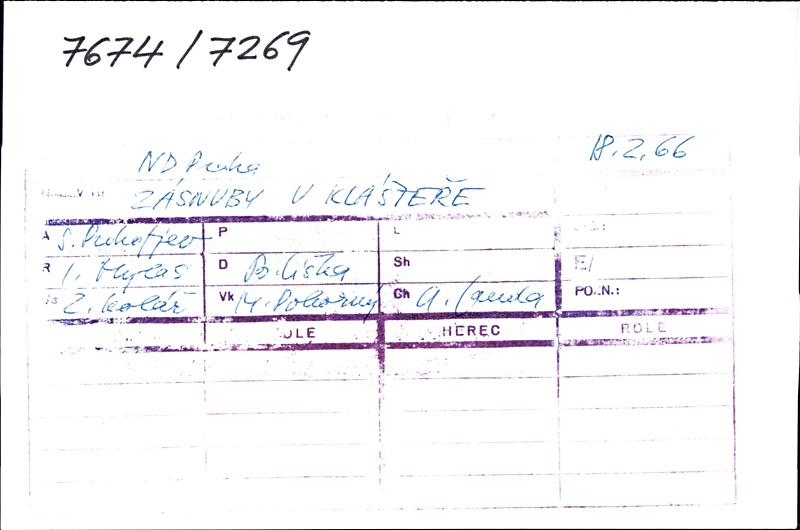 7674 / 7269
ND Praha 18.2.66
ZÁSNUBY V KLÁŠTEŘE
A S. Prokofjev P L
R I. Hylas D Bo. Liška Sh
Z. Kolář Vk M. Pokorný Ch POZN.:
HEREC ROLE